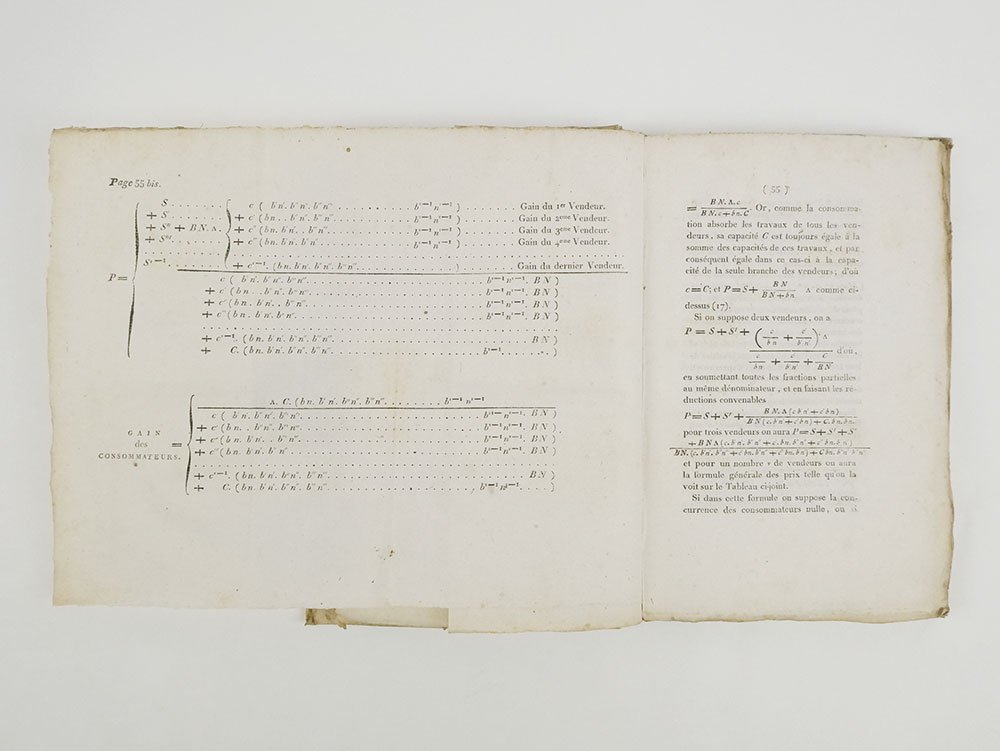 Page 55 bis.
P =
S . . . . . . . c ( b'n'. b''n''. b'''n''' . . . . . . . . . . . b^{v-1} n^{v-1} ) . . . . . . . . . Gain du 1er Vendeur.
+ S' . . . . . . + c' ( bn. . b''n''. b'''n''' . . . . . . . . . . . b^{v-1} n^{v-1} ) . . . . . . . . . Gain du 2eme Vendeur.
+ S'' + BN. A. + c'' ( bn. b'n'. . b'''n''' . . . . . . . . . . . b^{v-1} n^{v-1} ) . . . . . . . . . Gain du 3eme Vendeur.
+ S''' . . . . . . + c''' ( bn. b'n'. b''n'' . . . . . . . . . . . b^{v-1} n^{v-1} ) . . . . . . . . . Gain du 4eme Vendeur.
S^{v-1} . . . . . . + c^{v-1}. ( bn. b'n'. b''n''. b'''n''' . . . . . . . . . . . ) . . . . . . . . . Gain du dernier Vendeur.
c ( b'n'. b''n''. b'''n''' . . . . . . . . . . . b^{v-1} n^{v-1}. BN )
+ c' ( bn . . b''n''. b'''n''' . . . . . . . . . . . b^{v-1} n^{v-1}. BN )
+ c'' ( bn. b'n'. . b'''n''' . . . . . . . . . . . b^{v-1} n^{v-1}. BN )
+ c''' ( bn. b'n'. b''n'' . . . . . . . . . . . b^{v-1} n^{v-1}. BN )
+ c^{v-1}. ( bn. b'n'. b''n''. b'''n''' . . . . . . . . . . . BN )
+ C. ( bn. b'n'. b''n''. b'''n''' . . . . . . . . . . . b^{v-1} . . . . . . )
GAIN
des
CONSOMMATEURS. =
A. C. ( bn. b'n'. b''n''. b'''n''' . . . . . . . . b^{v-1} n^{v-1}
c ( b'n'. b''n''. b'''n''' . . . . . . . . . . . b^{v-1} n^{v-1}. BN )
+ c' ( bn. . b''n''. b'''n''' . . . . . . . . . . . b^{v-1} n^{v-1}. BN )
+ c'' ( bn. b'n'. . b'''n''' . . . . . . . . . . . b^{v-1} n^{v-1}. BN )
+ c''' ( bn. b'n'. b''n'' . . . . . . . . . . . b^{v-1} n^{v-1}. BN )
+ c^{v-1}. ( bn. b'n'. b''n''. b'''n''' . . . . . . . . . . . BN )
+ C. ( bn. b'n'. b''n''. b'''n''' . . . . . . . . . . . b^{v-1} n^{v-1} . . . . )
( 55 )
= BN. A. c / BN. c + bn. C. Or, comme la consomma-
tion absorbe les travaux de tous les ven-
deurs, sa capacité C est toujours égale à la
somme des capacités de ces travaux, et par
conséquent égale dans ce cas-ci à la capa-
cité de la seule branche des vendeurs; d'où
c = C; et P = S + BN / BN + bn A comme ci-
dessus (17).
Si on suppose deux vendeurs, on a
P = S + S' + ( c / bn + c' / b'n' ). A / c / bn + c' / b'n' + C / BN d'où,
en soumettant toutes les fractions partielles
au même dénominateur, et en faisant les ré-
ductions convenables
P = S + S' + BN. A ( c b'n' + c' bn ) / BN ( c. b'n' + c' bn ) + C. bn. b'n'
pour trois vendeurs on aura P = S + S' + S''
+ BN A ( c. b'n'. b''n'' + c'. bn. b''n'' + c'' bn. b'n' ) / BN. ( c. b'n'. b''n'' + c' bn. b''n'' + c'' bn. b'n' ) + C bn. b'n' b''n''
et pour un nombre v de vendeurs on aura
la formule générale des prix telle qu'on la
voit sur le Tableau ci-joint.
Si dans cette formule on suppose la con-
currence des consommateurs nulle, ou